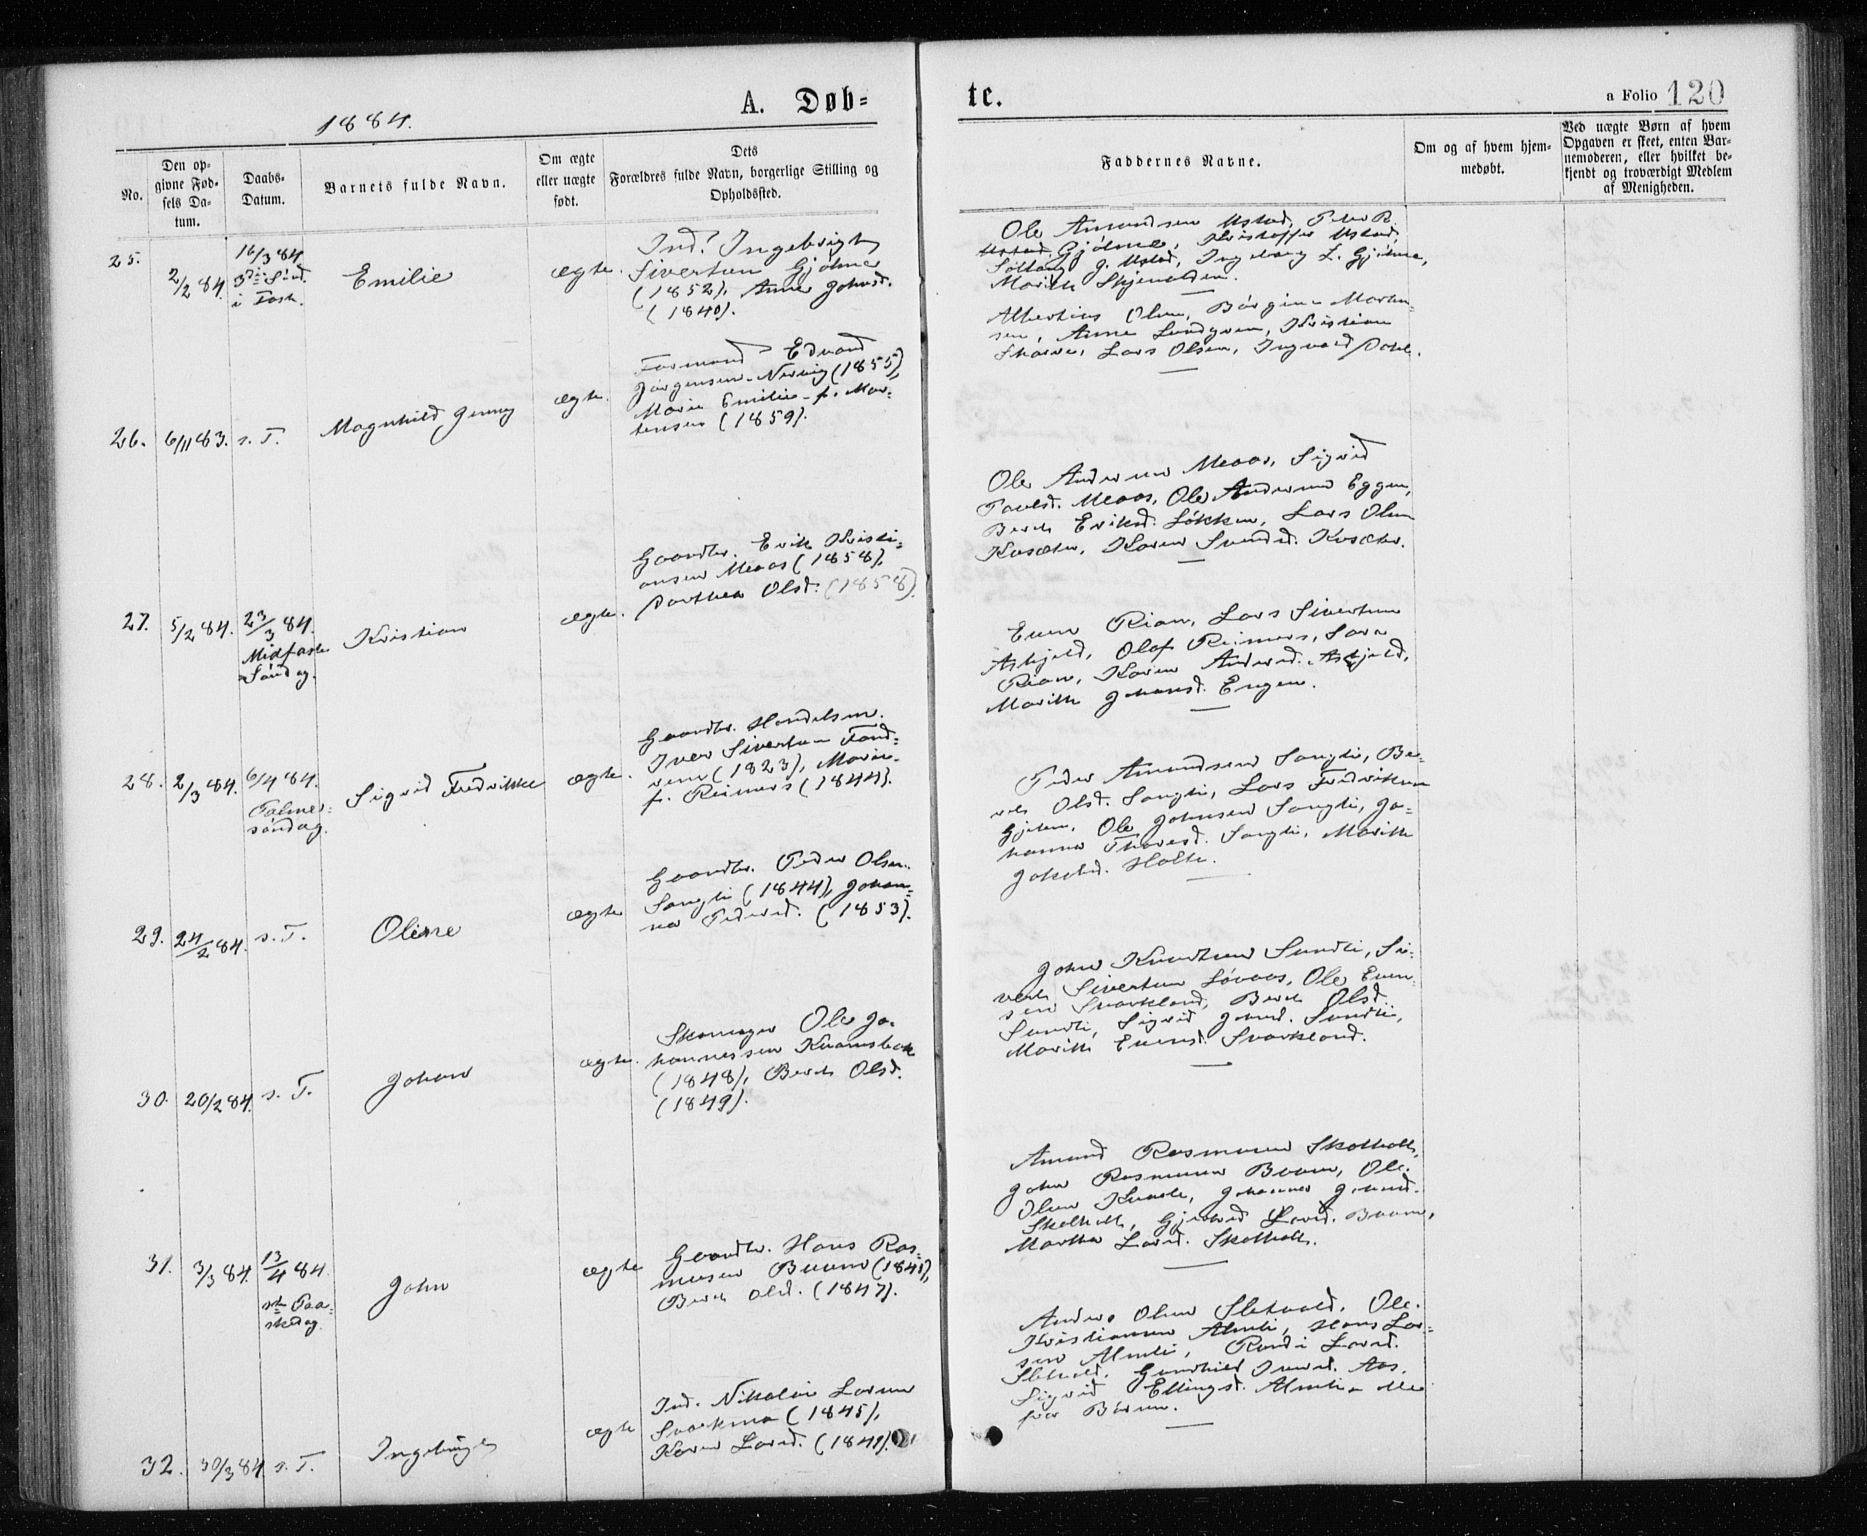 1884.
A. Døb=
te.
a Folio 120
No.
Den op=
givne Fød=
sels Da=
tum.
Daabs=
Datum.
Barnets fulde Navn.
Om ægte
eller uægte
født.
Dets
Forældres fulde Navn, borgerlige Stilling og
Opholdssted.
Faddernes Navne.
Om og af hvem hjem=
medøbt.
Ved uægte Børn af hvem
Opgaven er skeet, enten Bar=
nemoderen, eller hvilket be=
kjendt og troværdigt Medlem
af Menigheden.
25.
2/2 84.
16/3 84
3die Sønd.
i Fast.
Emilie
ægte.
Ind. Ingebrigt
Sivertsen Gjølme
(1852), Anne Johnsd.
(1840).
Ole Amundsen Ustad, Peter R.
Ustad Gjølme, Kristoffer Ustad,
J. Ustad, Ingeborg L. Gjølme,
Marith Skjenalden.
26.
6/11 83.
s. T.
Magnhild Jenny
ægte.
Formand Edvard
Jørgensen Nervig (1855),
Marie Emilie f. Mor=
tensen (1859).
Albertius Olsen, Børgine Morten=
sen, Anne Lundgren, Kristian
Lars Olsen, Ingvald Dahl.
27.
5/2 84.
23/3 84.
Midfaste
Søndag.
Kristian
ægte.
Gaardbr. Erik Kristi=
ansen Meaas (1858),
Dorthea Olsd. (1858).
Ole Andersen Meaas, Sigrid
Paulsd. Meaas, Ole Andersen Eggen,
Berit Eriksd. Løkken, Lars Olsen
Kvsæter, Karen Svendsd. Kvsæter.
28.
2/3 84.
6/4 84.
Palme=
søndag.
Sigrid Fredrikke
ægte.
Gaardbr. Handelsm.
Iver Sivertsen Fand=
rem (1823), Marie
f. Reimers (1844).
Even Rian, Lars Sivertsen
Askjeld, Olaf Reimers, Sara
Rian, Karen Andersd. Askjeld,
Marith Johansd. Engen.
29.
24/2 84.
s. T.
Oline
ægte
Gaardbr. Peder Olsen
Sangli (1844), Johan=
na Pedersd. (1853).
Peder Amundsen Sangli, Be=
rit Olsd. Sangli, Lars Fredriksen
Gjeten, Ole Johnsen Sangli, Jo=
hanna Thoresd. Sangli, Marith
Jakobsd. Holte.
30.
20/2 84.
s. T.
Johan
ægte.
Skomager Ole Jo=
hannessen Kvamsbak
(1848), Berit Olsd.
(1849).
John Knudtsen Sundli, Si=
vert Sivertsen Løvaas, Ole Even=
sen Svorkland, Berit Olsd.
Sundli, Sigrid Johnsd. Sundli,
Marith Evensd. Svorkland.
31.
3/3 84.
13/4 84.
1ste Paa=
skedag.
John
ægte
Gaardbr. Hans Ras=
musen Buum (1841),
Berit Olsd. (1847).
Amund Rasmusen Skolholt,
John Rasmusen Buum, Ole
Olsen Johanna Johnsd.
Skolholt, Gjertrud Larsd. Buum,
Martha Larsd. Skolholt.
32.
30/3 84
s. T.
Ingebrigt
ægte
Ind. Nikolai Larsen
Svorkmo (1845),
Karen Larsd. (1849).
Anders Olsen Sletvold, Ole
Kristiansen Almli, Hans Lar=
sen Almli, Randi Larsd.
Sletvold, Gunhild Iversd. Aas,
Sigrid Ellingsd. Almli
før Børsen.